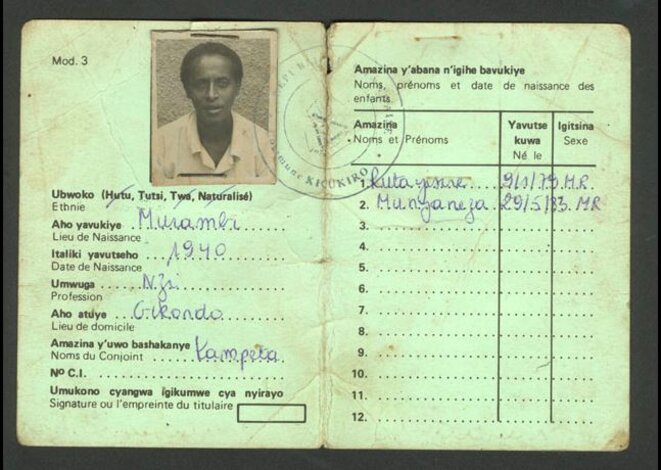 Mod. 3
RÉPUBLI
Commune KICUKIRO
Ubwoko (Hutu, Tutsi, Twa, Naturalisé)
Ethnie
Aho yavukiye Murambi
Lieu de Naissance
Italiki yavutseho 1940
Date de Naissance
Umwuga Nzi
Profession
Aho atuye Gikondo
Lieu de domicile
Amazina y'uwo bashakanye Kampeta
Noms du Conjoint
No C.I.
Umukono cyangwa igikumwe cya nyirayo
Signature ou l'empreinte du titulaire
Amazina y'abana n'igihe bavukiye
Noms, prénoms et date de naissance des
enfants.
Amazina Yavutse Igitsina
Noms et Prénoms kuwa Sexe
Né le
1. Rutayisire 9/1/79 MR
2. Munyaneza 29/5/83 MR
3.
4.
5.
6.
7.
8.
9.
10.
11.
12.